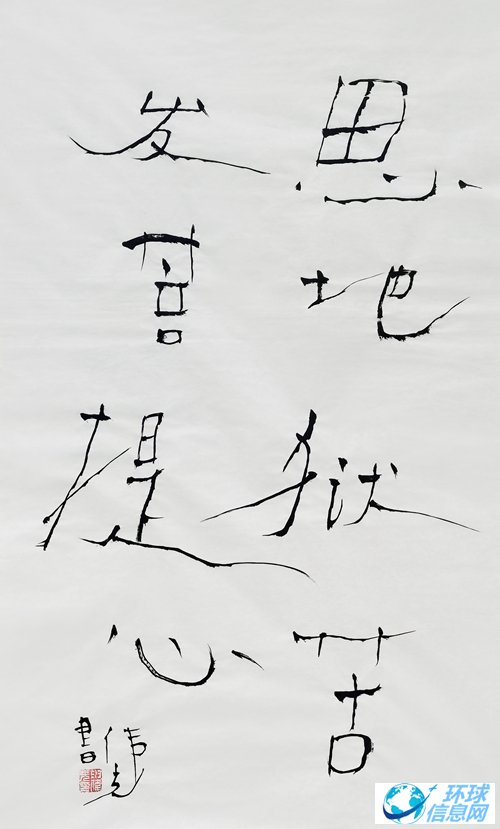 思地狱苦
发菩提心
伟
書
环球
信息网